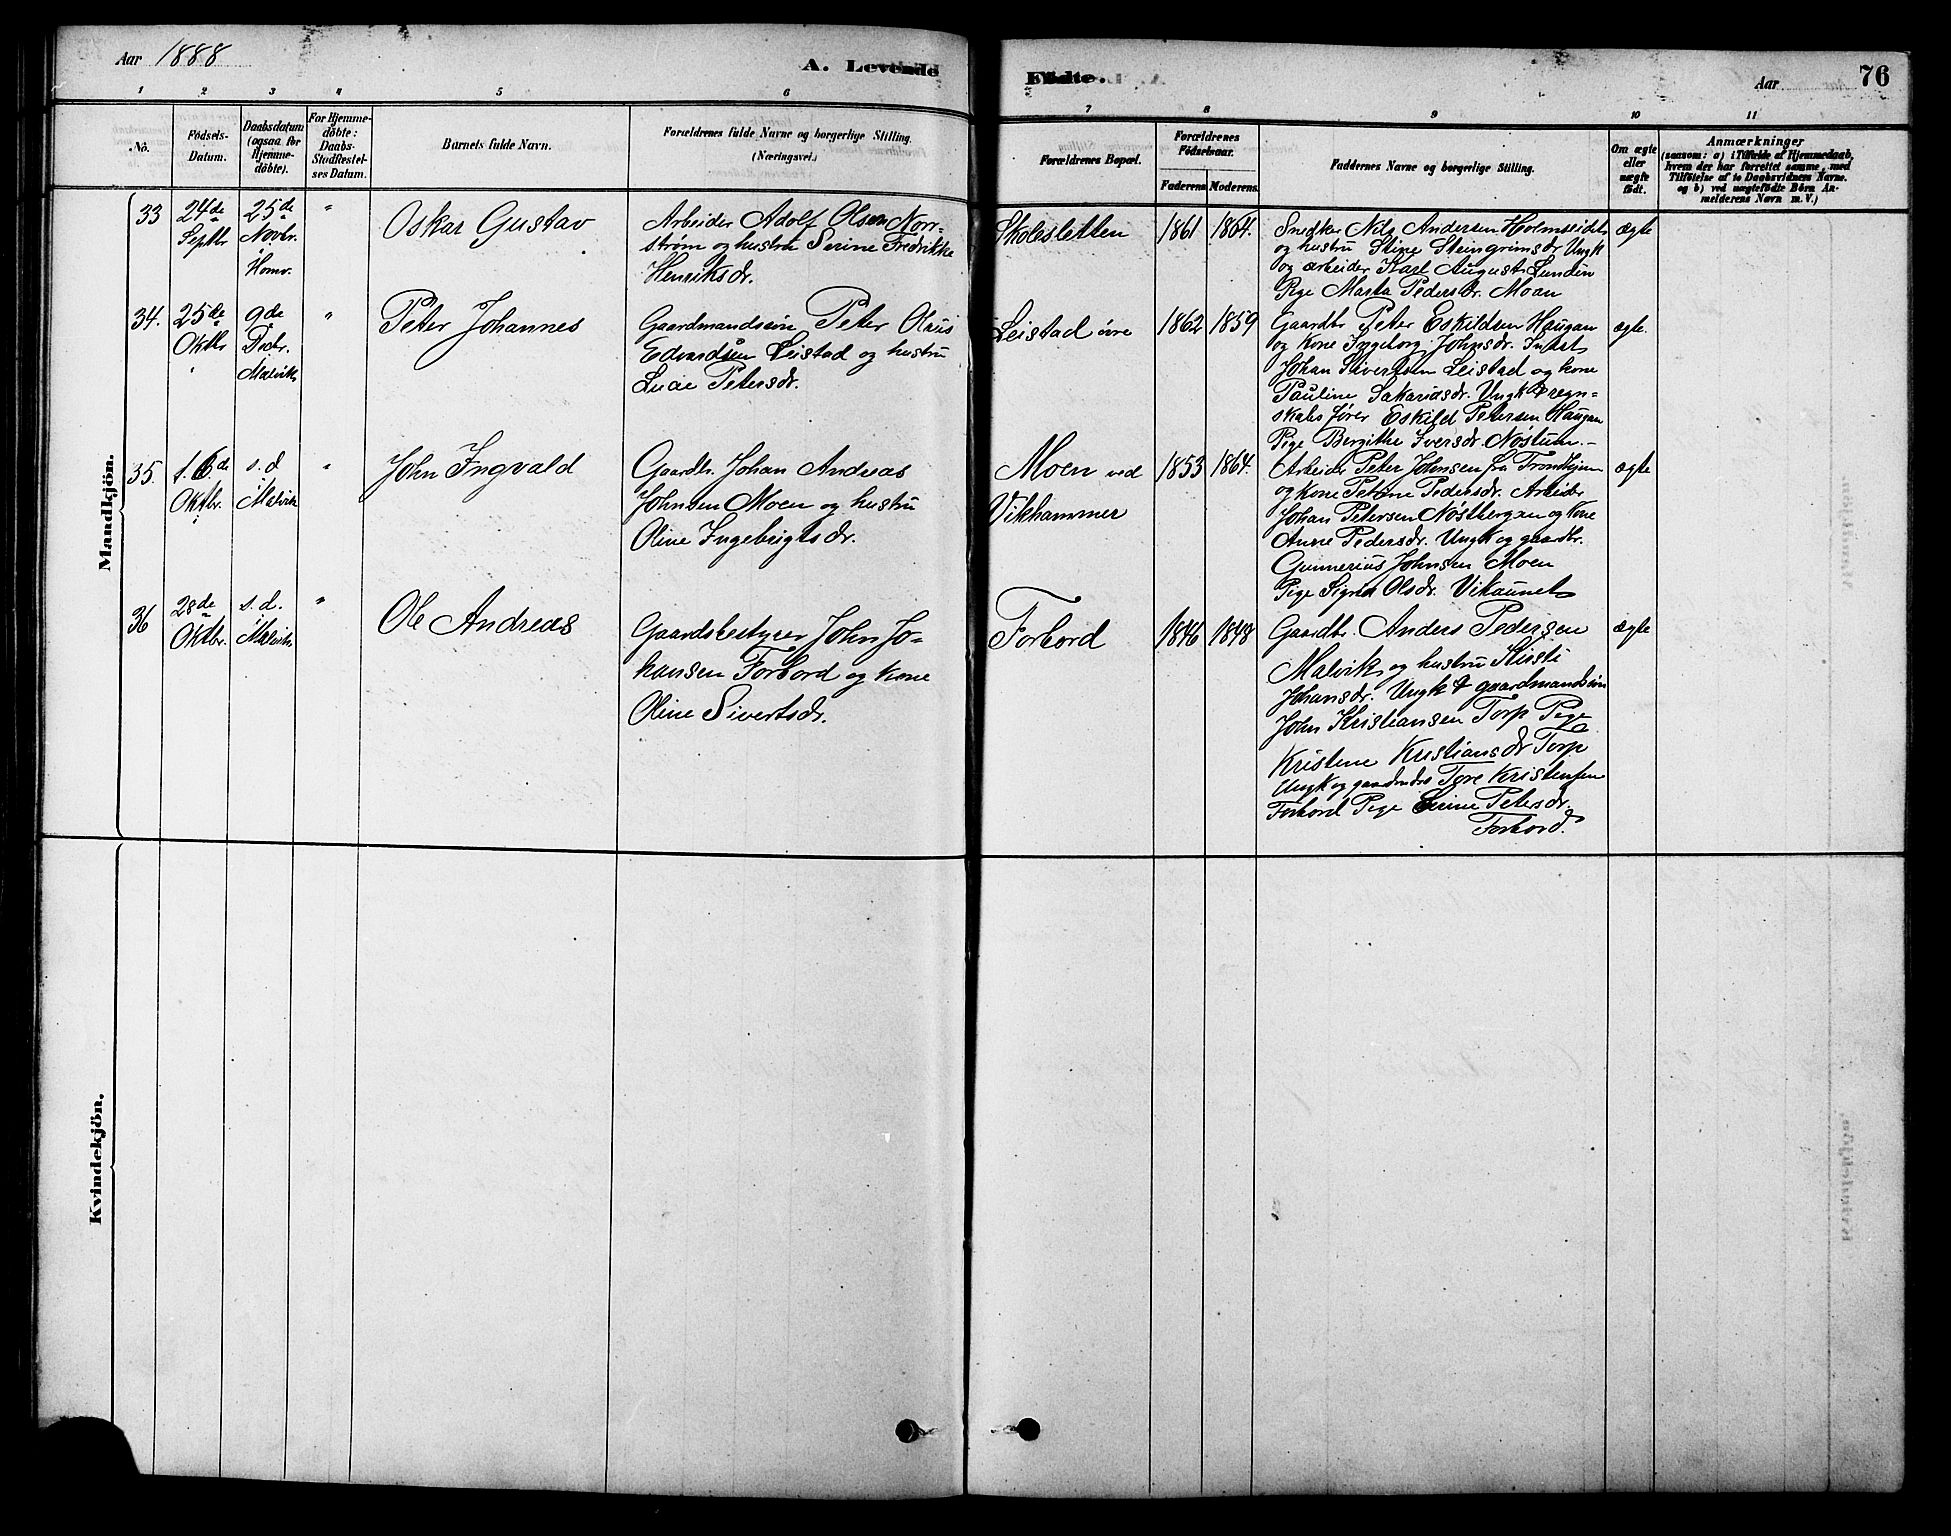 Aar 1888
A. Levende
Fødte.
Aar
76
1 2 3 4 5 6 7 8 9 10 11
No.
Fødsels-
Datum.
Daabsdatum
(ogsaa for
Hjemme-
døbte).
For Hjemme-
døbte:
Daabs-
Stadfæstel-
ses Datum.
Barnets fulde Navn.
Forældrenes fulde Navne og borgerlige Stilling.
(Næringsvei.)
Forældrenes Bopæl.
Forældrenes
Fødselsaar.
Faderens
Moderens.
Faddernes Navne og borgerlige Stilling.
Om ægte
eller
uægte
født.
Anmærkninger
(saasom: a) i Tilfælde af Hjemmedaab,
hvem der har forrettet samme, med
Tilføielse af to Daabsvidners Navne.
og b) ved uægtefødte Børn An-
melderens Navn m. V.)
Mandkjön.
33
24de
Septbr
25de
Novbr.
i
Homv.
"
Oskar Gustav
Arbeider Adolf Olsen Norr-
strøm og hustru Serine Fredrikke
Henriksdr.
Skolesletten
1861
1864.
Snedker Nils Andersen Holmseidet
og hustru Stine Steingrimsdr Ungk
og arbeider Karl August Lundin
Pige Marta Pedersdr. Moan
ægte
34.
25de
Oktbr
9de
Decbr.
i
Malvik
"
Peter Johannes
Gaardmandssøn Peter Olaus
Edvardsen Leistad og hustru
Lucie Petersdr.
Leistad övre
1862
1859
Gaardbr Peter Eskildsen Haugan
og Kone Ingeborg Johnsdr.
Johan Sivertsen Leistad og kone
Pauline Sakariasdr. Ungk & regn-
skabsfører Eskild Petersen Haugan
Pige Bergithe Iversdr. Nöstum.-
ægte.
35.
Oktbr.
s.d
i
Malvik
"
John Ingvald
Gaardbr. Johan Andreas
Johnsen Moen og hustru
Oline Ingebrigtsdr.
Moen ved
Vikhammer
1853
1864.
Arbeider Peter Johnsen fra Trondhjem
og Kone Petrine Pedersdr. Arbeider
Johan Petersen Nöstbergan og Kone
Anne Pedersdr. Ungk og gaardbr.
Gunnerius Johnsen Moen
Pige Signa Olsdr. Vikaunet
ægte
36
28de
Oktbr.
s.d.
i
Malvik
"
Ole Andreas
Gaardsbestyrer John Jo-
hansen Forbord og Kone
Oline Sivertsdr.
Forbord
1846
1848
Gaardbr. Anders Pedersen
Malvik og hustru Kirsti
Johansdr. Ungk & gaardmandssøn
John Kristiansen Torp Pige
Kristine Kristiansdr Torp
Ungk og Tore Kristensen
Forbord Pige Serine Petersdr.
Forbord.
ægte
Kvindekjön.